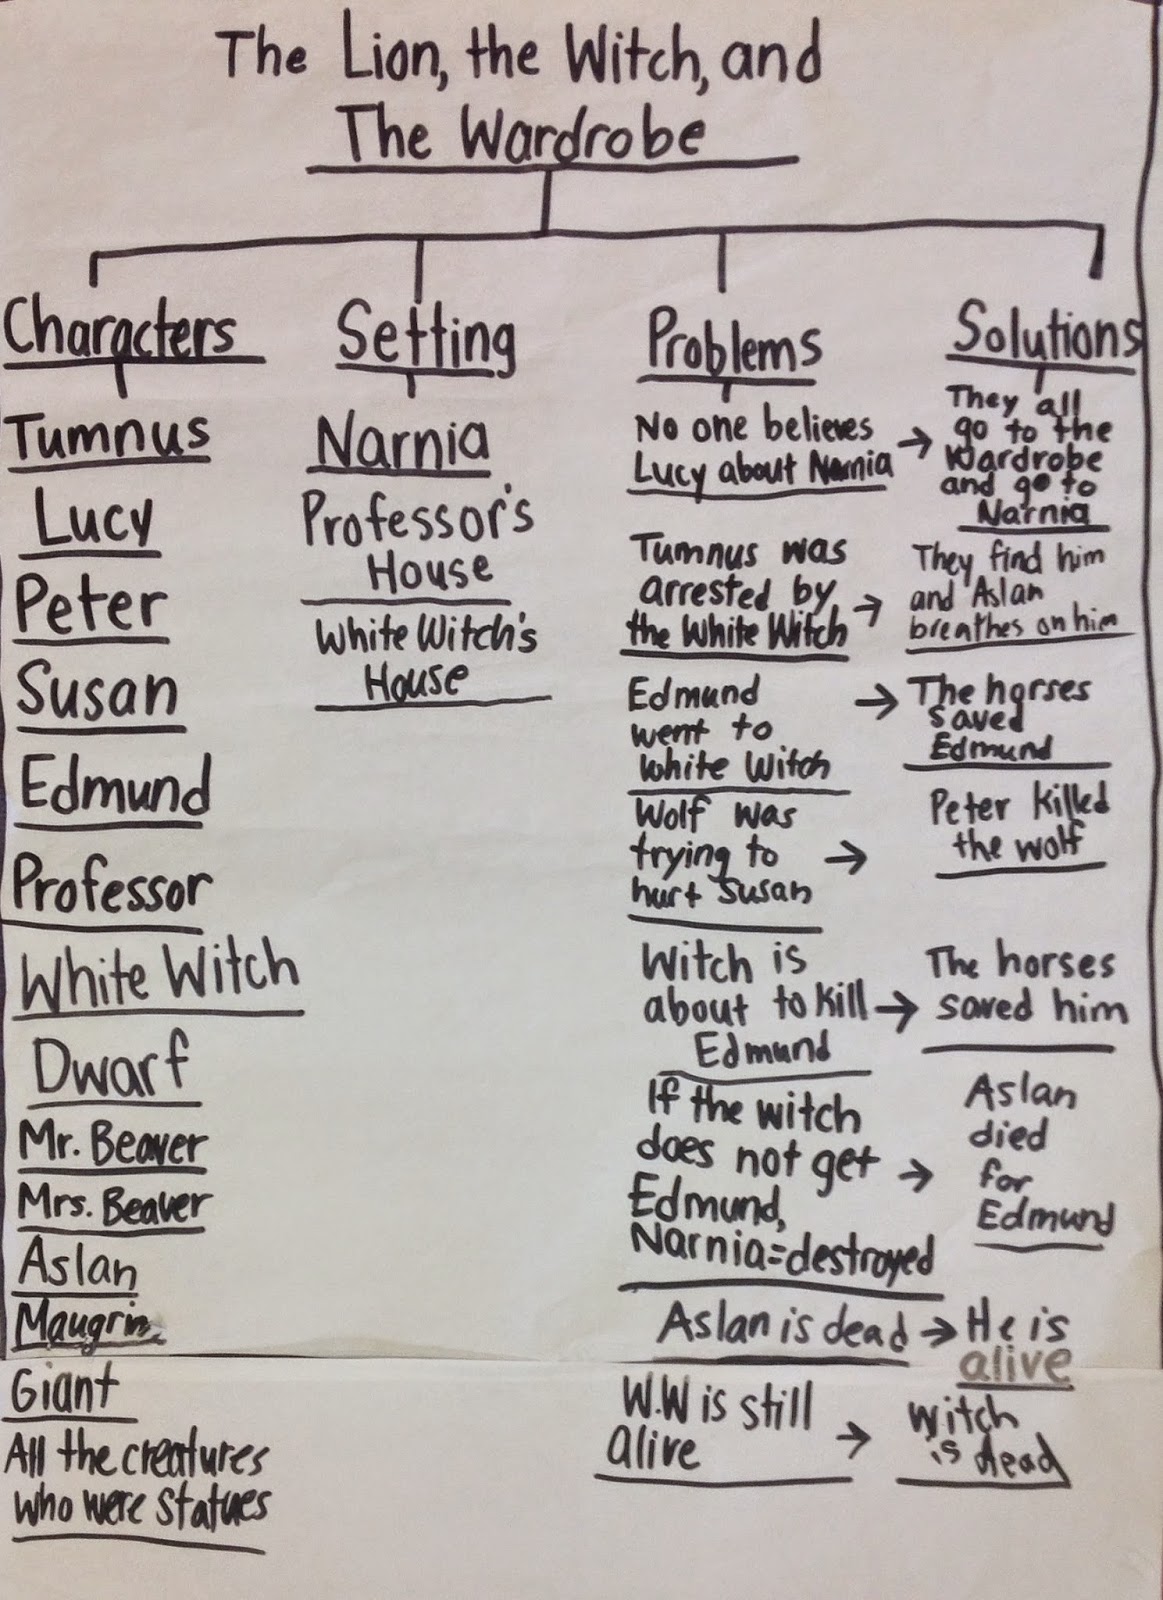 The Lion, the Witch, and
The Wardrobe
Characters
Tumnus
Lucy
Peter
Susan
Edmund
Professor
White Witch
Dwarf
Mr. Beaver
Mrs. Beaver
Aslan
Maugrim
Giant
All the creatures
who were statues
Setting
Narnia
Professor's
House
White Witch's
House
Problems
No one believes
Lucy about Narnia
Tumnus was
arrested by
the White Witch
Edmund
went to
White Witch
Wolf was
trying to
hurt Susan
Witch is
about to kill
Edmund
If the witch
does not get
Edmund,
Narnia=destroyed
Aslan is dead
W.W is still
alive
Solutions
They all
go to the
Wardrobe
and go to
Narnia
They find him
and Aslan
breathes on him
The horses
saved
Edmund
Peter killed
the wolf
The horses
saved him
Aslan
died
for
Edmund
He is
alive
witch
is dead